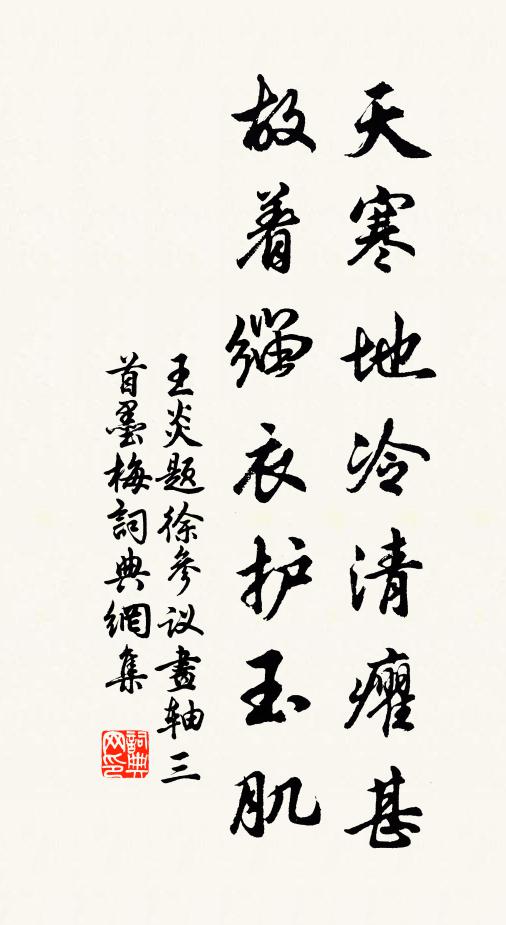 天寒地冷清癯甚
故着缁衣护玉肌
王炎题徐参议畫轴三
首墨梅詞典網集
詞典网印